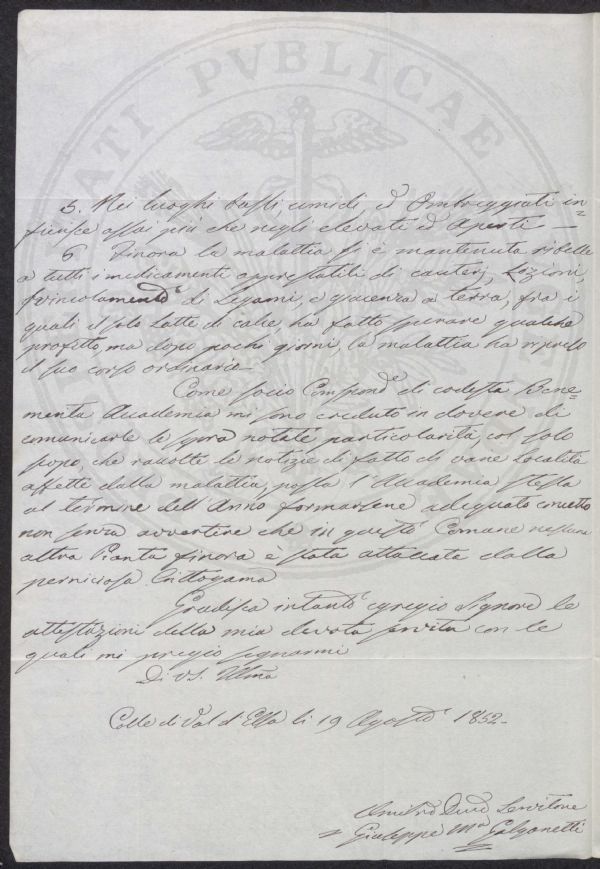 PROSPERITATI PUBLICAE AUGENDAE
5. Nei luoghi bassi, umidi ed Ombreggiati in=
fierisce assai più che negli elevati ed Aperti —
6 Finora la malattia si è mantenuta ribelle
a tutti i medicamenti apprestatili di cauterj, Lozioni,
svincolamento di Legami, e giacenza a terra, fra i
quali il solo Latte di calce, ha fatto sperare qualche
profitto, ma dopo pochi giorni, la malattia ha ripreso
il suo corso ordinario —
Come socio Corrispondᵉ di codesta Bene=
merita Accademia mi sono creduto in dovere di
comunicarle le sopra notate particolarità, col solo
scopo, che raccolte le notizie di fatto di varie Località
affette dalla malattia, possa l'Accademia stessa
al termine dell'Anno formarsene adequato concetto
non senza avvertire che in questo Comune nessuna
altra Pianta finora è stata attaccata dalla
perniciosa Crittogama
Gradisca intanto egregio Signore le
attestazioni della mia devota servitù con le
quali mi pregio segnarmi
Di VS. Illma
Colle di Val d'Elsa li 19 Agosto 1852 -
Servitore
Giuseppe Mª